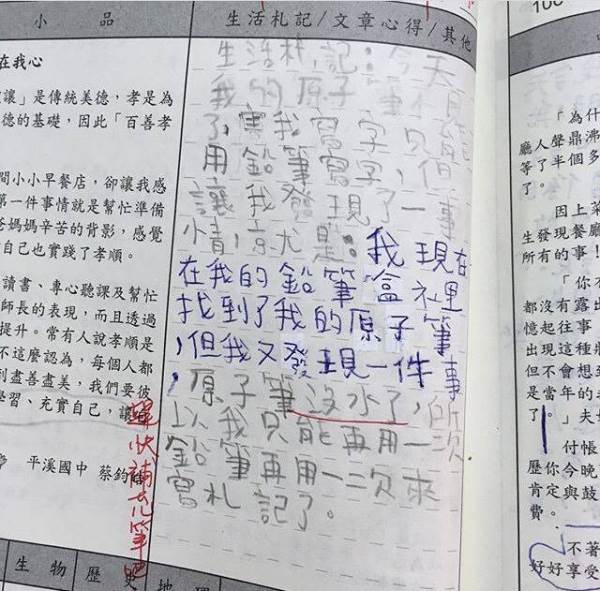 小品
生活札記/文章心得/其他
在我心
讓」是傳統美德，孝是為
德的基礎，因此「百善孝
間小小早餐店，卻讓我感
第一件事情就是幫忙準備
爸媽媽辛苦的背影，感覺
自己也實踐了孝順。
讀書、專心聽課及幫忙
師長的表現，而且透過
提升。常有人說孝順是
不這麼認為，每個人都
到盡善盡美，我們要彼
學習、充實自己，讓
平溪國中 蔡鈞
生活札記：今天
我的原子筆不見
了,害我寫字只能
用鉛筆寫字,但
讓我發現了一事
情,京尤是：我現在
在我的鉛筆盒裡
找到了我的原子筆
,但我又發現一件事
,原子筆沒水了,所
以我只能再用一次
鉛筆再用一次來
寫札記了。
趕快補充筆吧
生物 歷史 地理
「為什
廳人聲鼎沸
等了半個多
了。
因上菜
生發現餐廳
所有的事！
「你不
都沒有露出
憶起往事
出現這種狀
但不會想到
是當年的
了。」夫
付帳
歷你今晚
肯定與鼓
費。
不著
好好享受